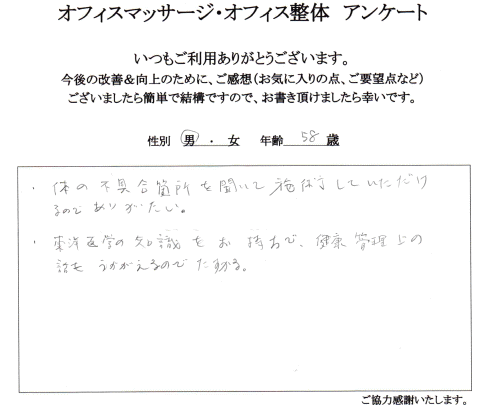 オフィスマッサージ・オフィス整体 アンケート
いつもご利用ありがとうございます。
今後の改善&向上のために、ご感想(お気に入りの点、ご要望点など)
ございましたら簡単で結構ですので、お書き頂けましたら幸いです。
性別 男 ・ 女 年齢 58 歳
・体の不具合箇所を聞いて施術していただけ
るのでありがたい。
・東洋医学の知識をお持ちで、健康管理上の
話もうかがえるのでたすかる。
ご協力感謝いたします。